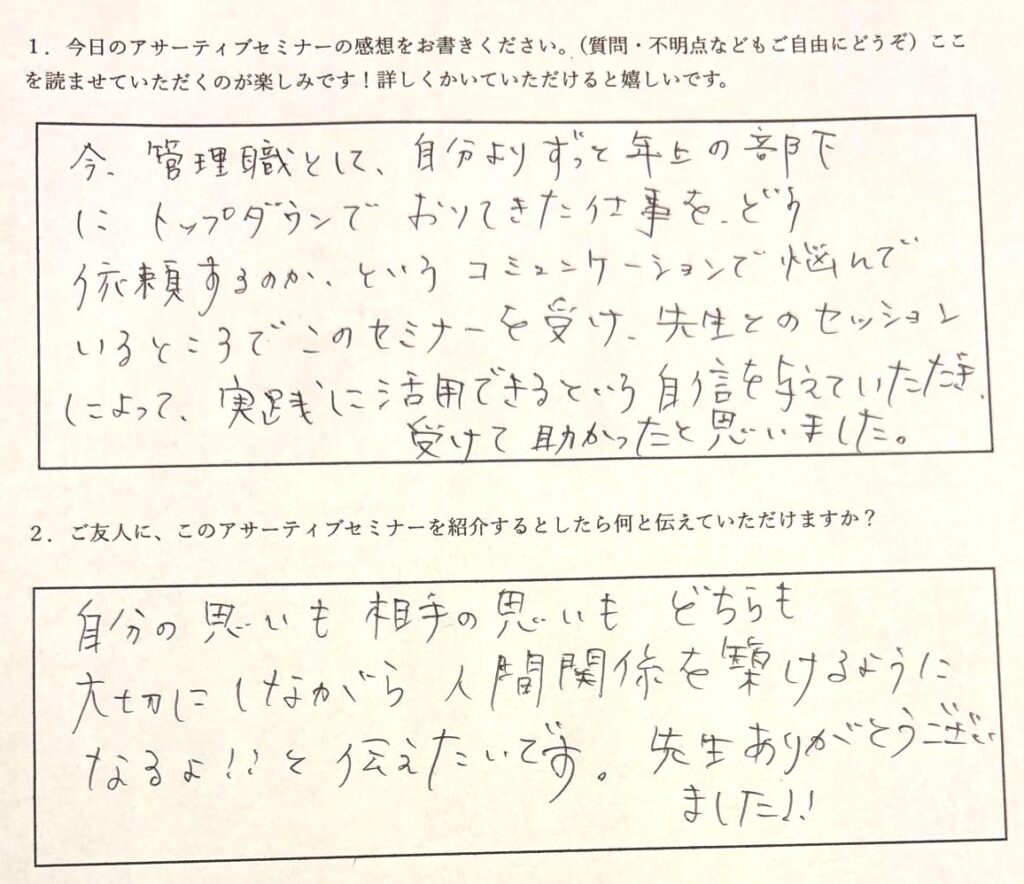 1．今日のアサーティブセミナーの感想をお書きください。（質問・不明点などもご自由にどうぞ）ここ
を読ませていただくのが楽しみです！詳しくかいていただけると嬉しいです。
今、管理職として、自分よりずっと年上の部下
に トップダウンで おりてきた仕事を、どう
依頼するのか、という コミュニケーションで 悩んで
いるところで このセミナーを受け、先生とのセッション
によって、実践に活用できるという自信を与えていただき、
受けて助かったと思いました。
2．ご友人に、このアサーティブセミナーを紹介するとしたら何と伝えていただけますか？
自分の思いも 相手の思いも どちらも
大切にしながら 人間関係を築けるように
なるよ!!と伝えたいです。 先生ありがとうござい
ました!!